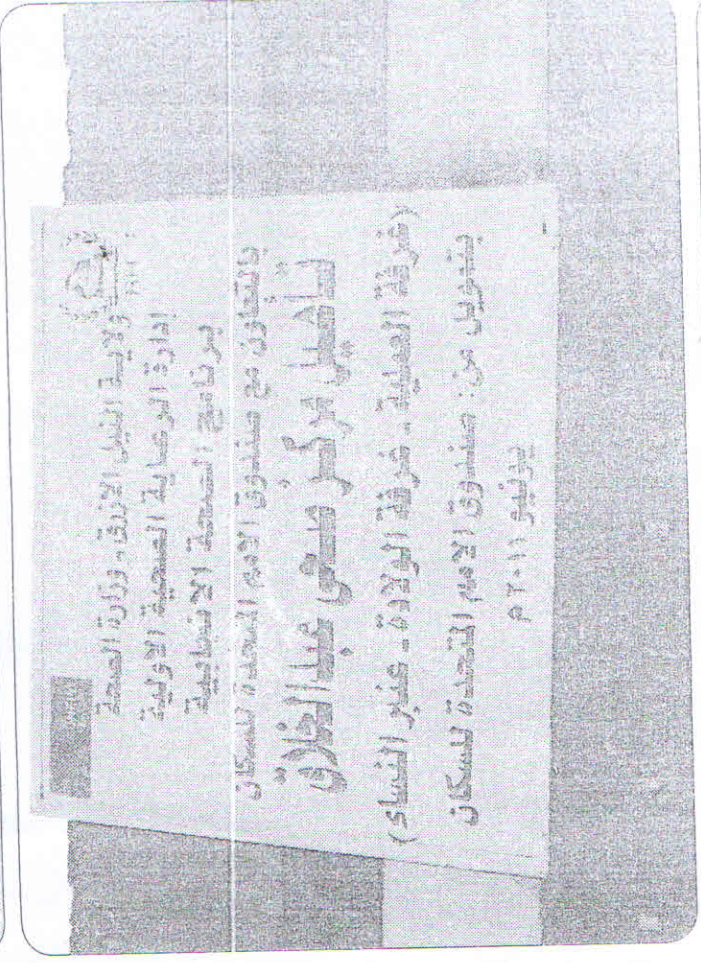 ولاية النيل الازرق - وزارة الصحة
إدارة الرعاية الصحية الاولية
برنامج الصحة الانجابية
بالتعاون مع صندوق الامم المتحدة للسكان
تأهيل مركز صحى عبدالخلاق
(غرفة العملية - غرفة الولادة - عنبر النساء)
بتمويل من: صندوق الامم المتحدة للسكان
يونيو ٢٠١١م